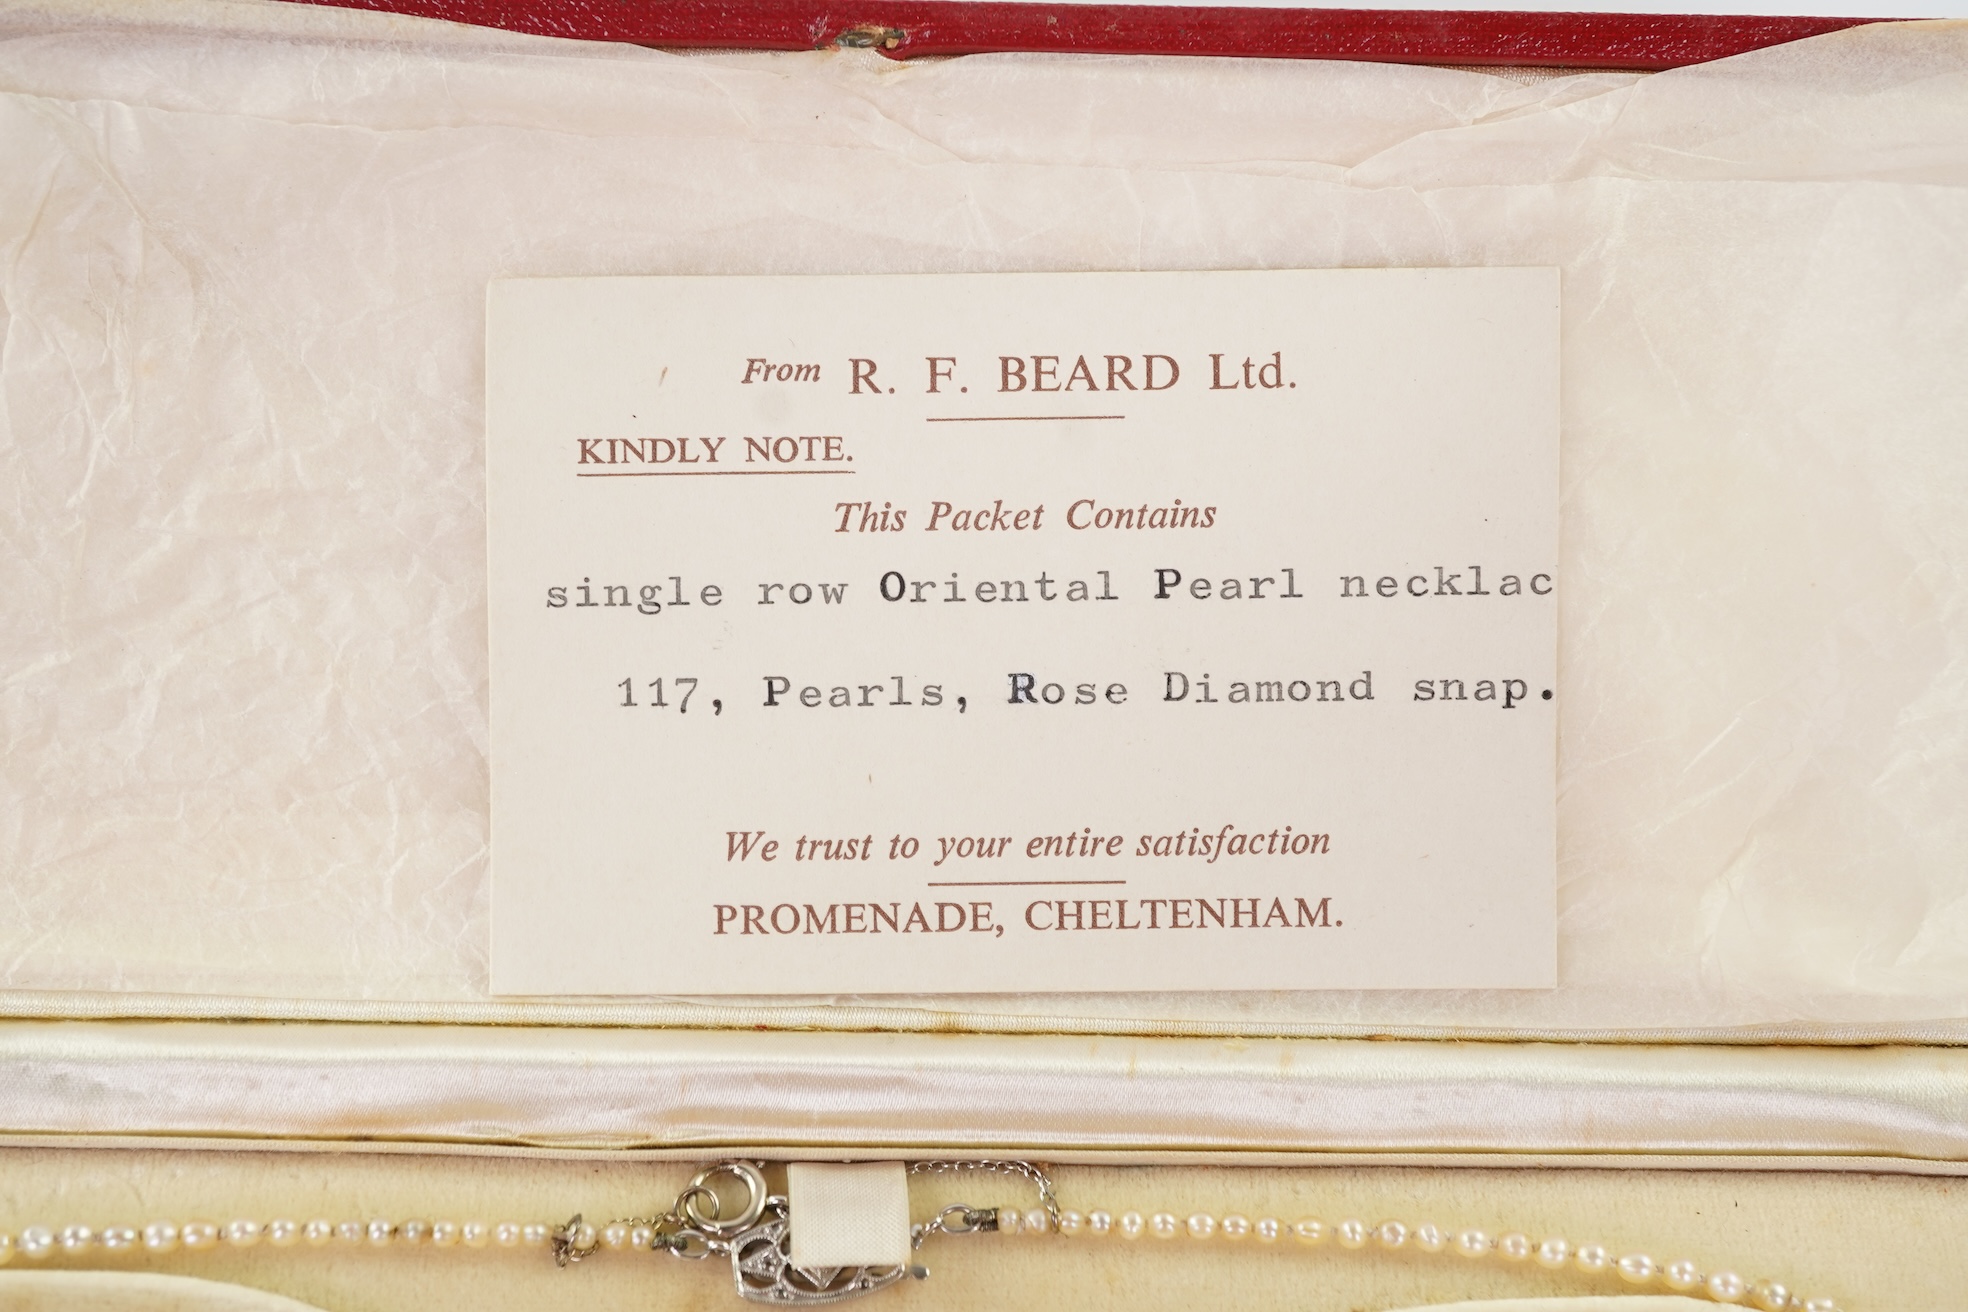 From R. F. BEARD Ltd.
KINDLY NOTE.
This Packet Contains
single row Oriental Pearl necklac
117, Pearls, Rose Diamond snap.
We trust to your entire satisfaction
PROMENADE, CHELTENHAM.